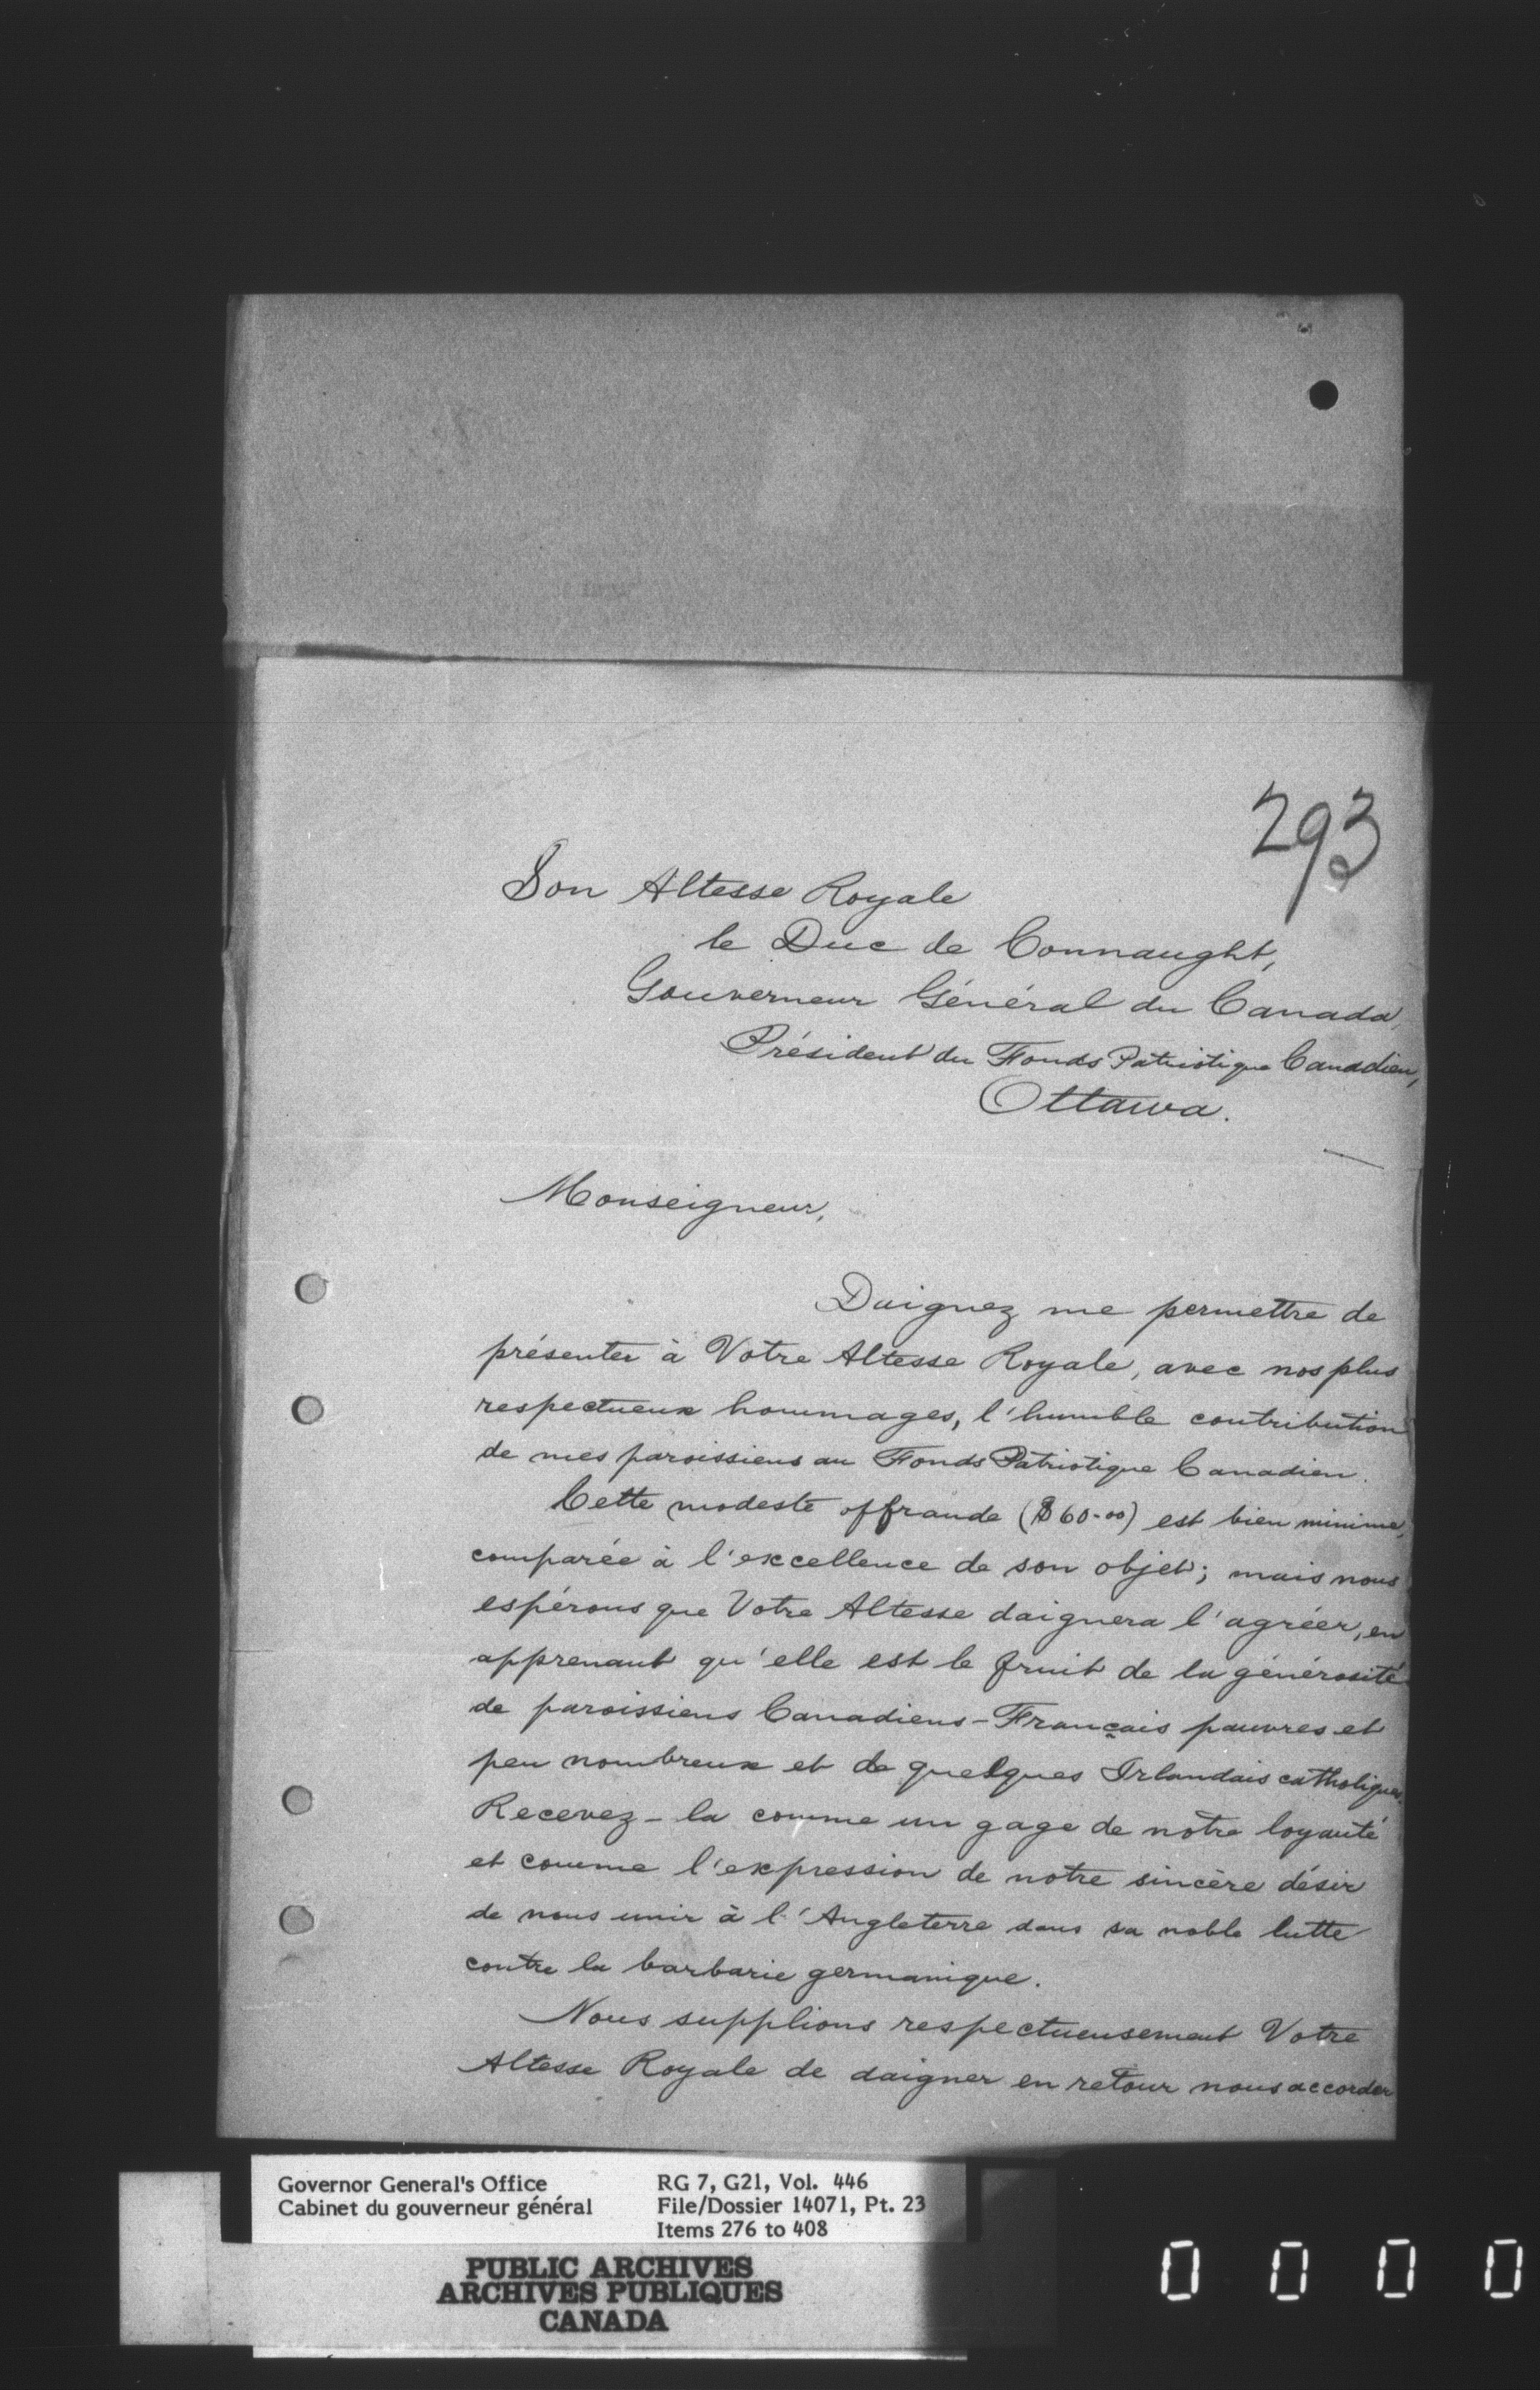 293
Son Altesse Royale
le Duc de Connaught,
Gouverneur Général du Canada,
Président du Fonds Patriotique Canadien,
Ottawa.
Monseigneur,
Daignez me permettre de
présenter à Votre Altesse Royale, avec nos plus
respectueux hommages, l'humble contribution
de mes paroissiens au Fonds Patriotique Canadien.
Cette modeste offrande ($60.00) est bien minime,
comparée à l'excellence de son objet; mais nous
espérons que Votre Altesse daignera l'agréer, en
apprenant qu'elle est le fruit de la générosité
de paroissiens Canadiens-Français pauvres et
peu nombreux et de quelques Irlandais catholiques.
Recevez-la comme un gage de notre loyauté
et comme l'expression de notre sincère désir
de nous unir à l'Angleterre dans sa noble lutte
contre la barbarie germanique.
Nous supplions respectueusement Votre
Altesse Royale de daigner en retour nous accorder
Governor General's Office RG 7, G21, Vol. 446
Cabinet du gouverneur général File/Dossier 14071, Pt. 23
Items 276 to 408
PUBLIC ARCHIVES
ARCHIVES PUBLIQUES
CANADA
0 0 0 0